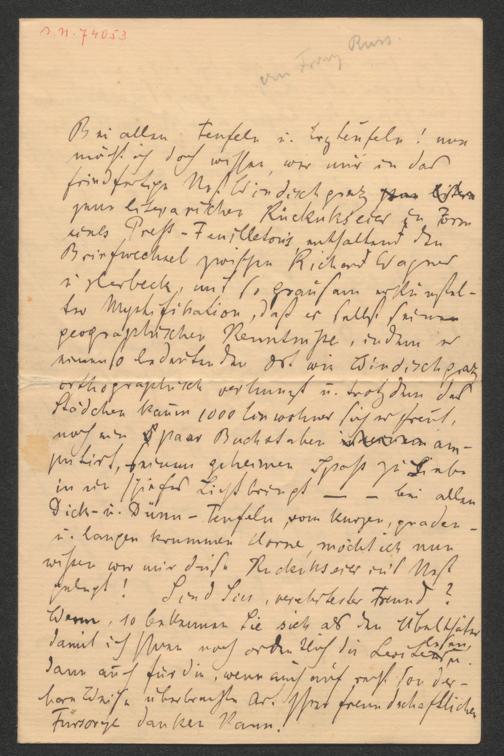 I.N. 74053
an Franz Russ.
Bei allen Teufeln u. Erzteufeln! nun
möcht ich doch wissen, wer mir in das
friedfertige Nest Windischgraz
jenes literarischen Kuckukseier in Form
eines Preß-Feuilletons enthaltend den
Briefwechsel zwischen Richard Wagner
u Herbeck, mit so grausam erkünstel-
ter Mystifikation, daß er selbst seinen
geographischen Kenntnissen, indem er
einen so bedeutenden Ort wie Windischgraz
orthographisch verhunzt u. trotzdem das
Städchen kaum 1000 Einwohner sich erfreut,
noch ein paar Buchstaben am-
putirt, seinem geheimen Spaß zu Liebe
in ein schiefes Licht bringt — – bei allen
Dick- u. Dünn-Teufeln vom kurzen, graden-
u. langen krummen Horne, möcht ich nun
wissen wer mir diese Kuckukseier in's Nest
gelegt! Sind Sie's, verehrtester Freund?
Wenn, so bekennen Sie sich als den Übelthäter
damit ich Ihnen noch ordentlich die lesen
dann auch für die, wenn auch auf recht sonder-
bare Weise überbrachte Art Ihrer freundschaftlichen
Fürsorge danken kann.